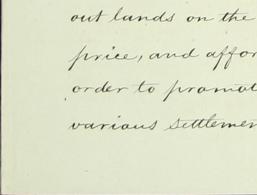 out lands on the
price, and affor
order to promot
various settlemen